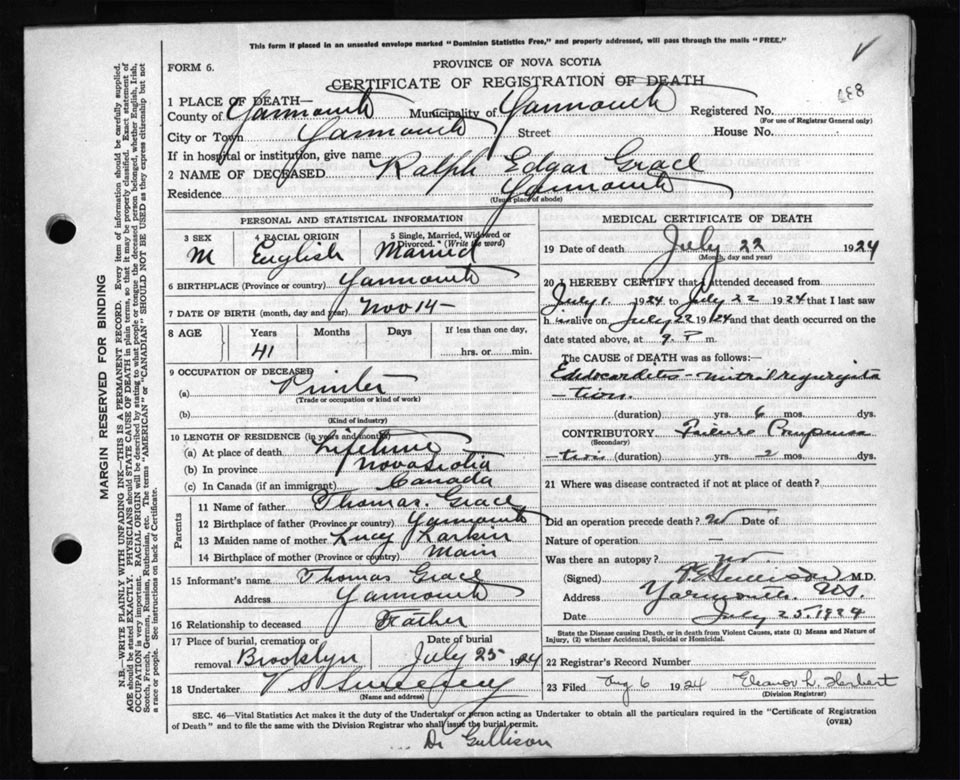 This form if placed in an unsealed envelope marked "Dominion Statistics Free," and properly addressed, will pass through the mails "FREE."
FORM 6.
PROVINCE OF NOVA SCOTIA
CERTIFICATE OF REGISTRATION OF DEATH
1 PLACE OF DEATH—
County of Yarmouth Municipality of Yarmouth Registered No.
(For use of Registrar General only)
City or Town Yarmouth Street House No.
If in hospital or institution, give name
2 NAME OF DECEASED Ralph Edgar Grace
Residence Yarmouth
(Usual place of abode)
PERSONAL AND STATISTICAL INFORMATION
3 SEX 4 RACIAL ORIGIN 5 Single, Married, Widowed or Divorced. (Write the word)
M English Married
6 BIRTHPLACE (Province or country) Yarmouth
7 DATE OF BIRTH (month, day and year) Nov 14 -
8 AGE Years Months Days If less than one day,
41 hrs. or min.
9 OCCUPATION OF DECEASED
(a) Printer
(Trade or occupation or kind of work)
(b)
(Kind of industry)
10 LENGTH OF RESIDENCE (in years and months)
(a) At place of death Lifetime
(b) In province Nova Scotia
(c) In Canada (if an immigrant) Canada
Parents
11 Name of father Thomas Grace
12 Birthplace of father (Province or country) Yarmouth
13 Maiden name of mother Lucy Larkin
14 Birthplace of mother (Province or country) Main
15 Informant's name Thomas Grace
Address Yarmouth
16 Relationship to deceased Father
17 Place of burial, cremation or removal Brooklyn Date of burial July 25 1924
18 Undertaker
(Name and address)
MEDICAL CERTIFICATE OF DEATH
19 Date of death July 22 1924
(Month, day and year)
20 I HEREBY CERTIFY that I attended deceased from
July 1 1924 to July 22 1924 that I last saw
h is alive on July 22 1924 and that death occurred on the
date stated above, at 9 P m.
The CAUSE of DEATH was as follows:
Endocarditis - mitral regurgita
-tion.
(duration) yrs. 6 mos. dys.
CONTRIBUTORY Failure Compensa
(Secondary)
-tion (duration) yrs. 2 mos. dys.
21 Where was disease contracted if not at place of death?
Did an operation precede death? No Date of
Nature of operation —
Was there an autopsy? No
(Signed) Gullison M.D.
Address Yarmouth N.S.
Date July 25, 1924
State the Disease causing Death, or in death from Violent Causes, state (1) Means and Nature of Injury, (2) whether Accidental, Suicidal or Homicidal.
22 Registrar's Record Number
23 Filed Aug 6 1924 Eleanor L. Herbert
(Division Registrar)
SEC. 46—Vital Statistics Act makes it the duty of the Undertaker or person acting as Undertaker to obtain all the particulars required in the "Certificate of Registration
of Death" and to file the same with the Division Registrar who shall issue the burial permit. (OVER)
Dr Gullison
MARGIN RESERVED FOR BINDING
N.B.—WRITE PLAINLY WITH UNFADING INK—THIS IS A PERMANENT RECORD. Every item of information should be carefully supplied.
AGE should be stated EXACTLY. PHYSICIANS should STATE CAUSE OF DEATH in plain terms, so that it may be properly classified. Exact statement of
OCCUPATION is very important. RACIAL ORIGIN will be described by stating to what people or tongue the deceased person belonged, whether English, Irish,
Scotch, French, German, Russian, Ruthenian, etc. The terms "AMERICAN" or "CANADIAN" SHOULD NOT BE USED as they express citizenship but not
a race or people. See instructions on back of Certificate.